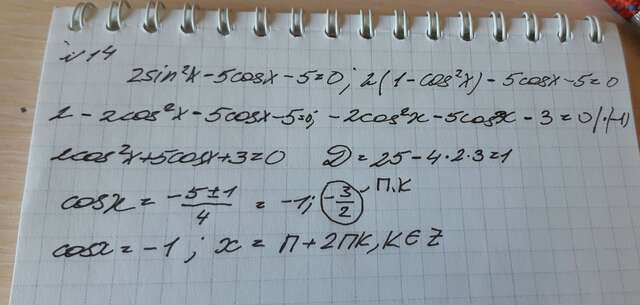 № 14
2sin²x - 5cosx - 5 = 0; 2(1 - cos²x) - 5cosx - 5 = 0
2 - 2cos²x - 5cosx - 5 = 0; -2cos²x - 5cosx - 3 = 0 |·(-1)
2cos²x + 5cosx + 3 = 0 D = 25 - 4·2·3 = 1
cosx = (-5 ± 1)/4 = -1; -3/2 П.К
cosx = -1; x = П + 2ПК, К ∈ Z